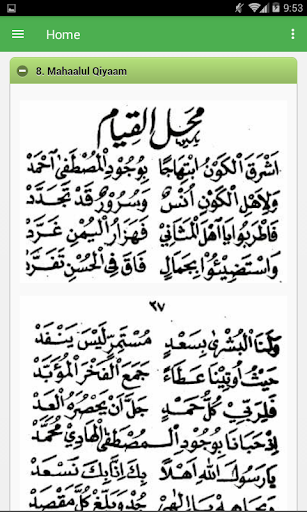 9:53
Home
8. Mahaalul Qiyaam
محل القيام
أَشْرَقَ الْكَوْنُ ابْتِهَاجًا بِوُجُودِ الْمُصْطَفٰى أَحْمَدْ
وَلِأَهْلِ الْكَوْنِ أُنْسٌ وَسُرُورٌ قَدْ تَجَدَّدْ
فَاطْرَبُوا يَا أَهْلَ الْمَثَانِي فَهَزَارُ الْيُمْنِ غَرَّدْ
وَاسْتَضِيئُوا بِجَمَالٍ فَاقَ فِي الْحُسْنِ تَفَرَّدْ
٣٧
وَلَنَا الْبُشْرٰى بِسَعْدٍ مُسْتَمِرٍّ لَيْسَ يَنْفَدْ
حَيْثُ أُوتِينَا عَطَاءً جَمَعَ الْفَخْرَ الْمُؤَبَّدْ
فَلِرَبِّي كُلُّ حَمْدٍ جَلَّ أَنْ يَحْصُرَهُ الْعَدّ
إِذْ حَبَانَا بِوُجُودِ الْمُصْطَفَى الْهَادِي مُحَمَّدْ
يَا رَسُولَ اللهِ أَهْلًا بِكَ إِنَّا بِكَ نَسْعَدْ
وَبِجَاهِهْ يَا إِلٰهِي جُدْ وَبَلِّغْ كُلَّ مَقْصَدْ